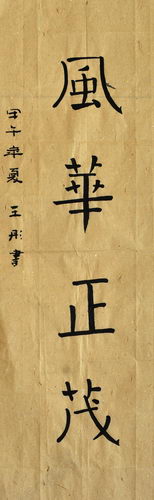 風華正茂
甲午年夏 王彤書